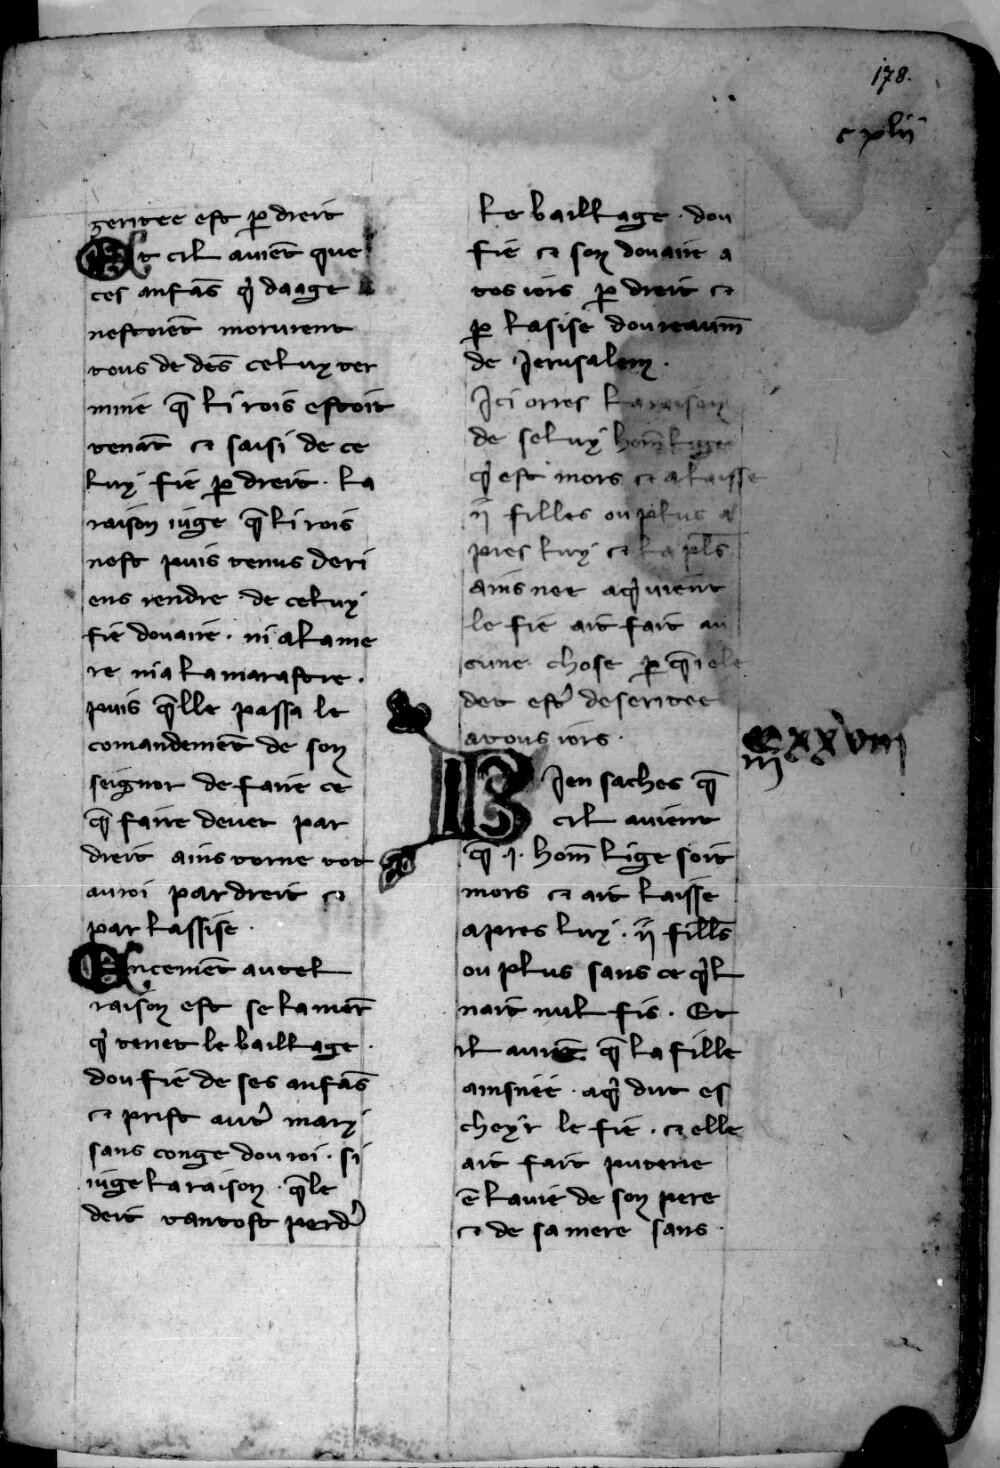 178.
c xlii
zeritee est p̱ dreit
Et cil auient que
ces anfãs q̇ daage
nestoient morurent
tous de dẽs celuy ter
mine q̃ li rois estoit
tenãt ⁊ saisi de ce
luy fie p̱ dreit · la
raison iuge q̃ li rois
nest puis tenus deri
ens rendre de celuy
fie douaire · ni a la me
re ni a la marastre ·
puis q̃lle passa le
comandemẽt de son
seignor de faire ce
q̃ faire deuet par
dreit ains torne tot
au roi par dreit ⁊
par lassise ·
Encemẽt autel
raison est se la mer̃
q̇ tenet le baillage ·
dou fie de ses anfãs
⁊ prist aut᷑ mary
sans conge dou roi · si
iuge la raison · q̃le
deit tantost perd᷑
le baillage · dou
fie ⁊ son douaire a
tos iors p̱ dreit ⁊
p̱ lasise dou reaum̃
de Jerusalem ·
Ici orres la raison
de seluy hom̃ lige
q̇ est mors ⁊ a laisse
ij filles ou plus a
pres luy ⁊ la pl̃s
ains nee a q̇ uient
le fie ait fait au
cune chose p̱ q̃i ele
det est᷑ deseritee
a tous iors ·
CXXVIII
Bien saches q̃
cil auient
q̃ · j · hom̃ lige soit
mors ⁊ ait laisse
apres luy · ij fill̃s
ou plus sans ce q̇l
nait nul fis · Et
il auiẽt q̃ la fille
ainsnee · a q̇ dut es
cheyr le fie · ⁊ elle
ait fait puterie
ẽ la uie de son pere
⁊ de sa mere sans ·